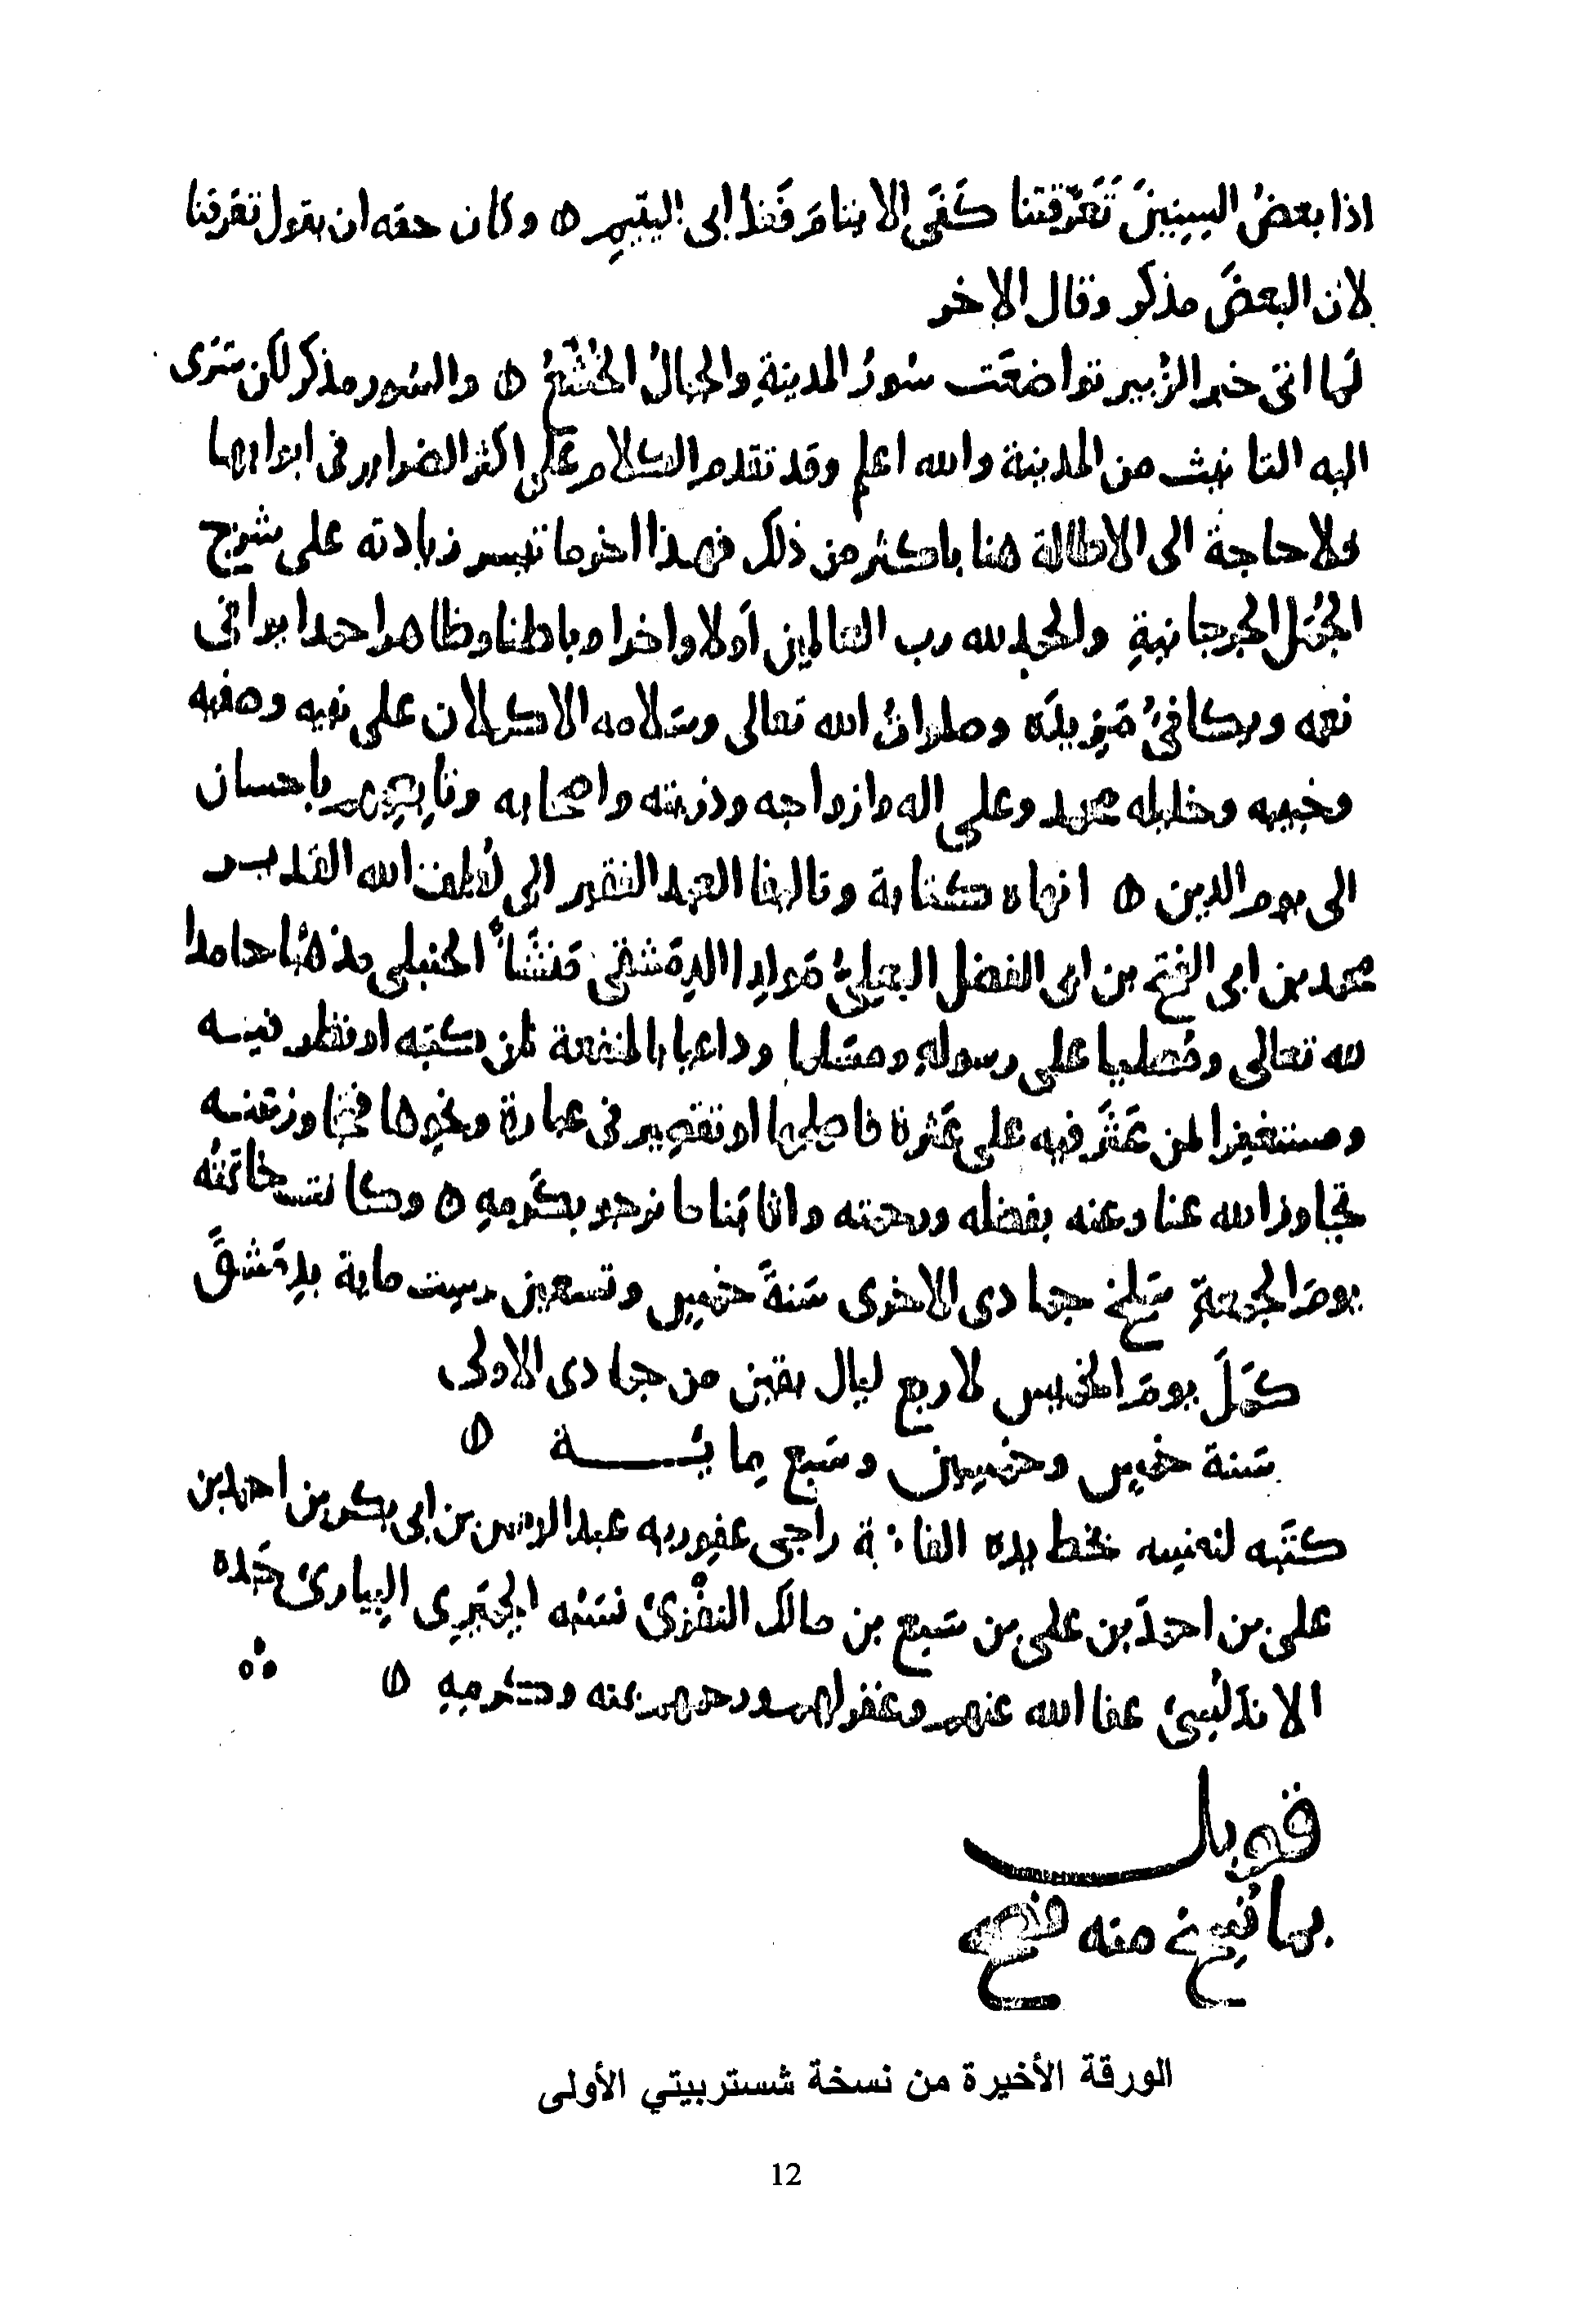 اذا بعضُ السِنِينَ تَعَرَّقتنا كَفَى الايتامَ فَقدَ ابى اليَتِيمِ ه وكان حقه ان يقول تعرقنا
لان البعضَ مذكر وقال الاخر
لَما اتى خبر الزُبير تواضعَت سُورُ المدينةِ والجبالُ الخُشَّعُ ه والسور مذكر لكن سَرَى
اليه التانيث من المدينة والله اعلم وقد تقدم الكلام على اكثر الضراير فى ابوابها
فلا حاجة الى الاطالة هنا باكثر من ذلك فهذا اخر ما تيسر زيادته على شرح
الجُمَل الجرجانيةِ والحمد لله رب العالمين اَولا واخرا وباطنا وظاهرا حمدا يوافى
نعمه ويكافئُ مَزِيدَه وصلواتُ الله تعالى وسَلامه الاكملان على نبيه وصفيه
وحبيبه وخليله محمد وعلى اله وازواجه وذريته واصحابه وتابِعِيهم باحسان
الى يوم الدين ه انهاه كتابة وتاليفا العبد الفقير الى لُطف الله القدير
محمد بن ابى الفتح بن ابى الفضل البعلىُّ مَولِدا الدِمَشقى مَنشَأً الحنبلى مذهبًا حامدا
لله تعالى ومُصليا على رسولهِ ومسَلما وداعيا بالمنفعة لمن كتبه او نظر فيه
ومستغفرا لمن عَثَرَ فيه على عَثرة فاصلحها او تقصِير فى عبارة ونحوِها فتجاوز عنه
تجاوز الله عنا وعنه بفضله ورحمته واثابَنا ما نرجو بكَرمِهِ ه وكانت خاتمتُه
يومَ الجمعةِ سَلخ جمادى الاخرى سَنةَ خمسٍ وتسعين وسِت ماية بدِمَشقَ
كَمَلَ يومَ الخميس لاربع ليال بقين من جمادى الاولى
سَنة خمسٍ وخمسِين وسَبع مِايُة ه
كتَبه لنفسِه بخط يده الفانية راجى عفو ربه عبد الرحمن بن ابى بكر بن احمد بن
على بن احمدَ بن على بن سَبع بن مالك النفْزىُّ نسَبُه الحِجَرِى البِيارىُّ جَده
الاندَلُسىُّ عفا الله عنهم وغفر لهم ورحمهم بمنه وكَرمِهِ ه
قوبل
بما نُسِخَ منه فصح
الورقة الأخيرة من نسخة شستربيتي الأولى
12